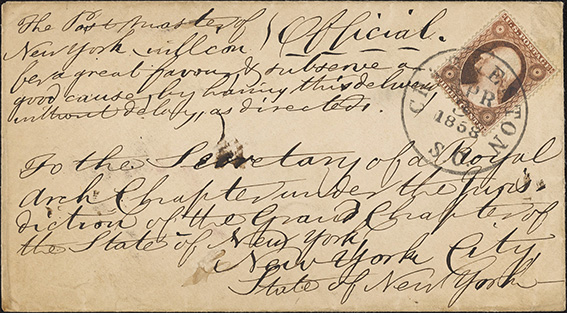 The Post master of
New York will con
fer a great favour & subserve a
good cause, by having this delivered
without delay, as directed.
Official.
CHARLESTON
S.C.
APR
1858
To the Secretary of a Royal
Arch Chapter under the juris
diction of the Grand Chapter of
the State of New York
New York City,
State of New York